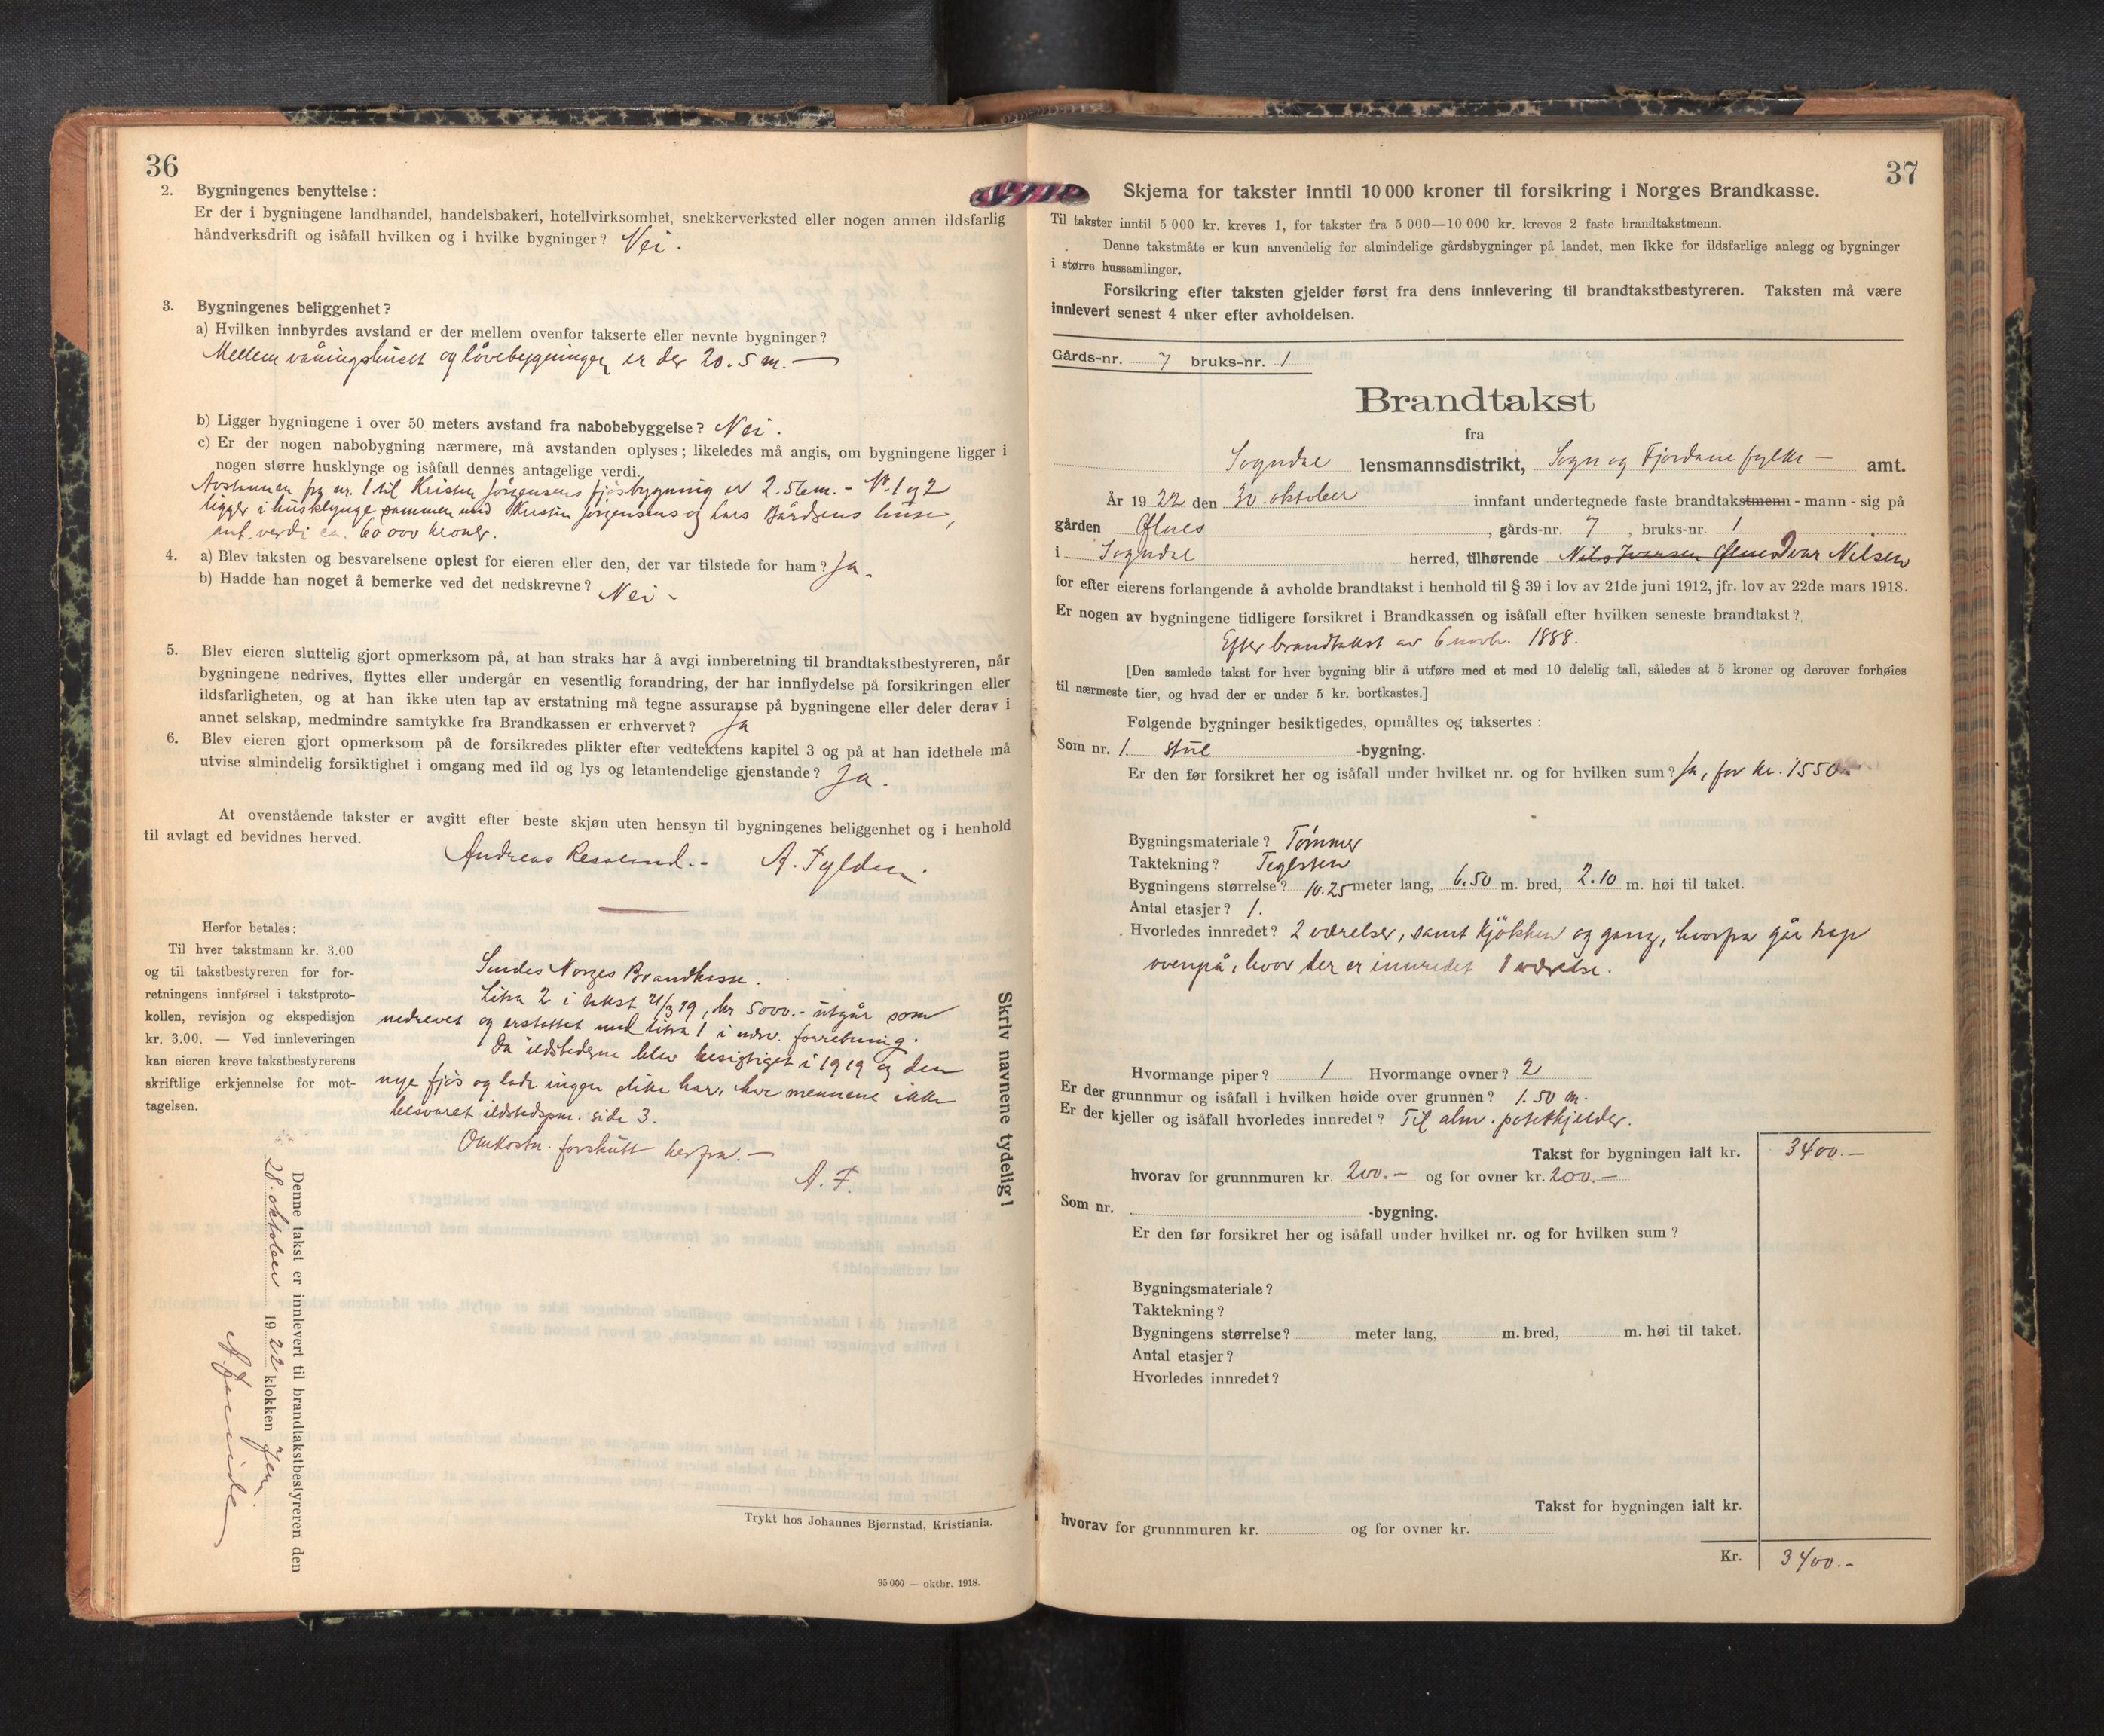 36
2. Bygningenes benyttelse:
Er der i bygningene landhandel, handelsbakeri, hotellvirksomhet, snekkerverksted eller nogen annen ildsfarlig
håndverksdrift og isåfall hvilken og i hvilke bygninger? Nei.
3. Bygningenes beliggenhet?
a) Hvilken innbyrdes avstand er der mellem ovenfor takserte eller nevnte bygninger?
Mellem våningshuset og løvebygningen er der 20.5 m. —
b) Ligger bygningene i over 50 meters avstand fra nabobebyggelse? Nei.
c) Er der nogen nabobygning nærmere, må avstanden oplyses; likeledes må angis, om bygningene ligger i
nogen større husklynge og isåfall dennes antagelige verdi.
Avstanden fra nr. 1 til Kristen Jørgensens fjøsbygning er 2.5 m. - Nr. 1 og 2
ligger i husklynge sammen med Kristen Jørgensens og Lars Bårdsens huse,
ant. verdi ca. 60 000 kroner.
4. a) Blev taksten og besvarelsene oplest for eieren eller den, der var tilstede for ham? Ja.
b) Hadde han noget å bemerke ved det nedskrevne? Nei -
5. Blev eieren sluttelig gjort opmerksom på, at han straks har å avgi innberetning til brandtakstbestyreren, når
bygningene nedrives, flyttes eller undergår en vesentlig forandring, der har innflydelse på forsikringen eller
ildsfarligheten, og at han ikke uten tap av erstatning må tegne assuranse på bygningene eller deler derav i
annet selskap, medmindre samtykke fra Brandkassen er erhvervet? Ja
6. Blev eieren gjort opmerksom på de forsikredes plikter efter vedtektens kapitel 3 og på at han idethele må
utvise almindelig forsiktighet i omgang med ild og lys og letantendelige gjenstande? Ja.
At ovenstående takster er avgitt efter beste skjøn uten hensyn til bygningenes beliggenhet og i henhold
til avlagt ed bevidnes herved.
Andreas A.
Herfor betales:
Til hver takstmann kr. 3.00
og til takstbestyreren for for-
retningens innførsel i takstproto-
kollen, revisjon og ekspedisjon
kr. 3.00. — Ved innleveringen
kan eieren kreve takstbestyrerens
skriftlige erkjennelse for mot-
tagelsen.
Sendes Norges Brandkasse.
Litra 2 i takst 21/3 19, kr 5000.- utgår som
nedrevet og erstattet med litra 1 i nærv. forretning.
Da ildstederne blev besigtiget i 1919 og den
nye fjøs og lade ingen slike har, har mennene ikke
besvaret ildstedspm. side 3.
Omkostn. forskutt herfra. —
A. F.
Skriv navnene tydelig!
Denne takst er innlevert til brandtakstbestyreren den
28. oktober 1922 klokken
Trykt hos Johannes Bjørnstad, Kristiania.
95 000 — oktbr. 1918.
37
Skjema for takster inntil 10 000 kroner til forsikring i Norges Brandkasse.
Til takster inntil 5 000 kr. kreves 1, for takster fra 5 000—10 000 kr. kreves 2 faste brandtakstmenn.
Denne takstmåte er kun anvendelig for almindelige gårdsbygninger på landet, men ikke for ildsfarlige anlegg og bygninger
i større hussamlinger.
Forsikring efter taksten gjelder først fra dens innlevering til brandtakstbestyreren. Taksten må være
innlevert senest 4 uker efter avholdelsen.
Gårds-nr. 7 bruks-nr. 1
Brandtakst
fra
Sogndal lensmannsdistrikt, Sogn og Fjordane fylke — amt.
År 1922 den 30. oktober innfant undertegnede faste brandtakstmenn - mann - sig på
gården Ølnes, gårds-nr. 7, bruks-nr. 1
i Sogndal herred, tilhørende Nils Ivarsen Ølnes Ivar Nilsen
for efter eierens forlangende å avholde brandtakst i henhold til § 39 i lov av 21de juni 1912, jfr. lov av 22de mars 1918.
Er nogen av bygningene tidligere forsikret i Brandkassen og isåfall efter hvilken seneste brandtakst?
Efter brandtakst av 6 novbr. 1888.
[Den samlede takst for hver bygning blir å utføre med et med 10 delelig tall, således at 5 kroner og derover forhøies
til nærmeste tier, og hvad der er under 5 kr. bortkastes.]
Følgende bygninger besiktigedes, opmåltes og taksertes:
Som nr. 1. stue -bygning.
Er den før forsikret her og isåfall under hvilket nr. og for hvilken sum? Ja, for kr. 1550
Bygningsmateriale? Tømmer
Taktekning? Teglsten
Bygningens størrelse? 10.25 meter lang, 6.50 m. bred, 2.10 m. høi til taket.
Antal etasjer? 1.
Hvorledes innredet? 2 værelser, samt kjøkken og gang, hvorfra går trap
ovenpå, hvor der er innredet 1 værelse.
Hvormange piper? 1 Hvormange ovner? 2
Er der grunnmur og isåfall i hvilken høide over grunnen? 1.50 m.
Er der kjeller og isåfall hvorledes innredet? Til alm. potetkjelder.
Takst for bygningen ialt kr. 3400.—
hvorav for grunnmuren kr. 200.— og for ovner kr. 200.—
Som nr. -bygning.
Er den før forsikret her og isåfall under hvilket nr. og for hvilken sum?
Bygningsmateriale?
Taktekning?
Bygningens størrelse? meter lang, m. bred, m. høi til taket.
Antal etasjer?
Hvorledes innredet?
Takst for bygningen ialt kr.
hvorav for grunnmuren kr. og for ovner kr.
Kr. 3400.—